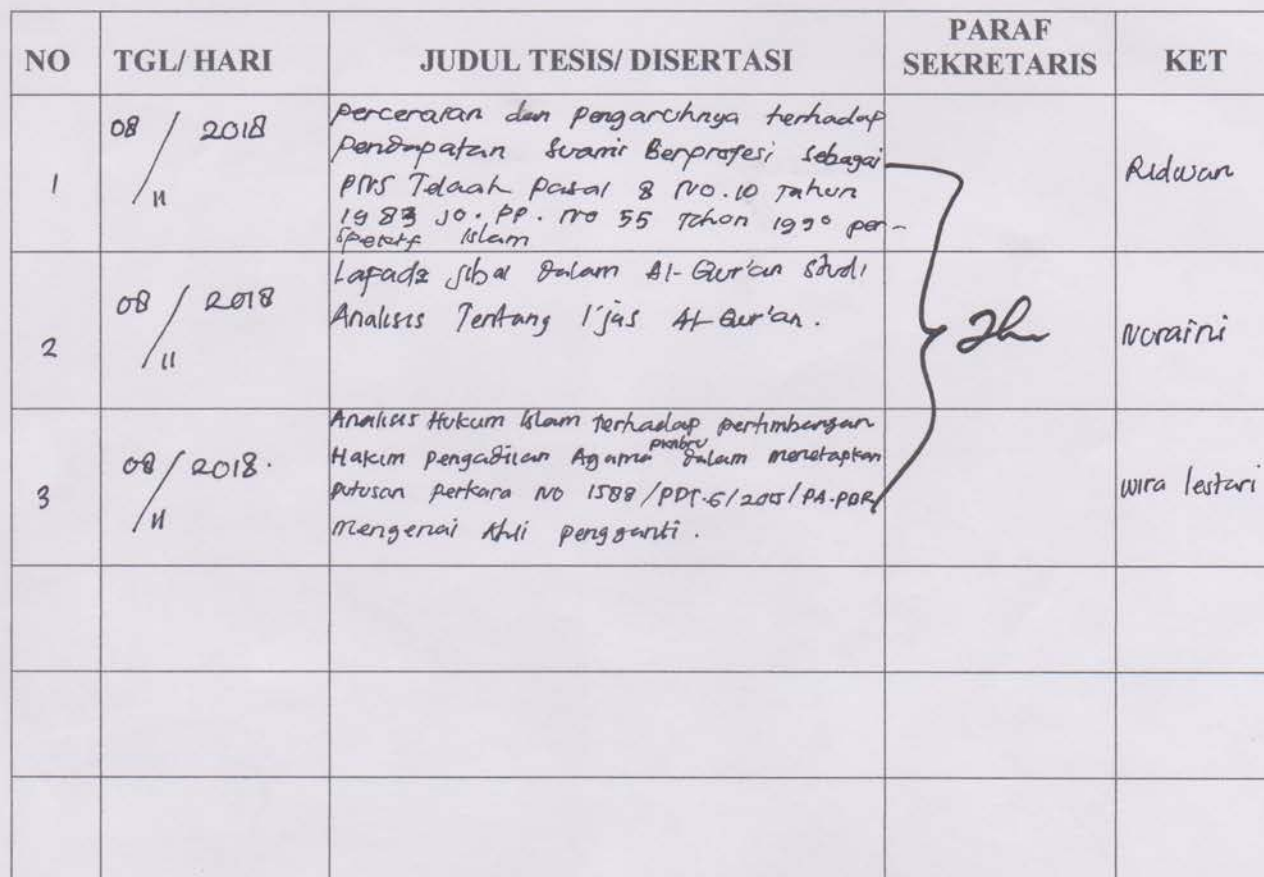 NO TGL/ HARI JUDUL TESIS/ DISERTASI PARAF SEKRETARIS KET
1 08 / 11 2018
perceraian dan pengaruhnya terhadap
Pendapatan Suami Berprofesi sebagai
PNS Telaah pasal 8 No. 10 Tahun
1983 jo. PP. No 55 Tahun 1990 per-
spektif Islam
Ridwan
2 08 / 11 2018
Lapadz Jibal dalam Al-Qur'an Studi
Analisis Tentang I'jas Al-Qur'an.
Noraini
3 08 / 11 2018.
Analisis Hukum Islam terhadap pertimbangan
Hakim pengadilan Agama dalam menetapkan
putusan perkara No 1588/PDT.G/2015/PA-PBR
mengenai Ahli pengganti.
wira lestari